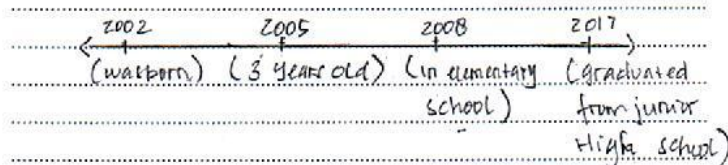 2002 2005 2008 2017
(was born) (3 years old) (in elementary (graduated
school) from junior
High school)